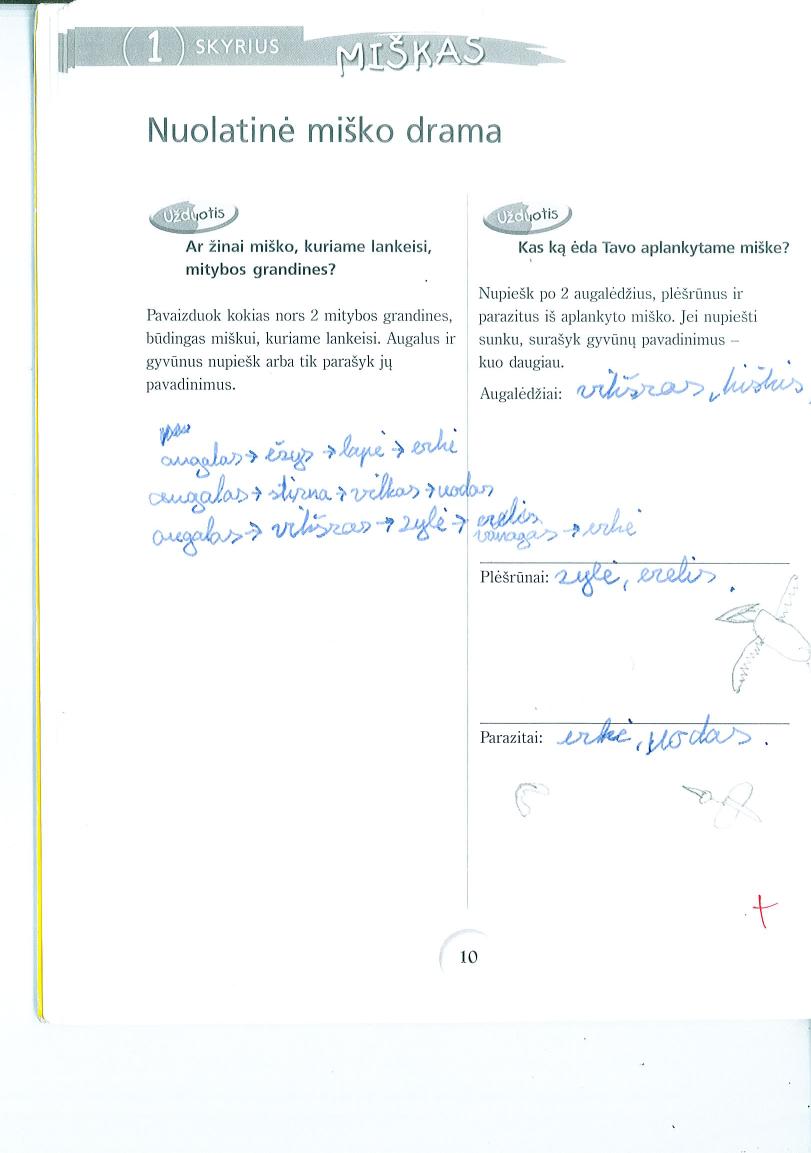 1 SKYRIUS MIŠKAS
Nuolatinė miško drama
Užduotis
Ar žinai miško, kuriame lankeisi,
mitybos grandines?
Pavaizduok kokias nors 2 mitybos grandines,
būdingas miškui, kuriame lankeisi. Augalus ir
gyvūnus nupiešk arba tik parašyk jų
pavadinimus.
augalas → ežys → lapė → erkė
augalas → stirna → vilkas → uodas
augalas → vikšras → zylė → erelis
vanagas → erkė
Užduotis
Kas ką ėda Tavo aplankytame miške?
Nupiešk po 2 augalėdžius, plėšrūnus ir
parazitus iš aplankyto miško. Jei nupiešti
sunku, surašyk gyvūnų pavadinimus –
kuo daugiau.
Augalėdžiai: vikšras, kiškis
Plėšrūnai: zylė, erelis.
Parazitai: erkė, uodas.
+
10